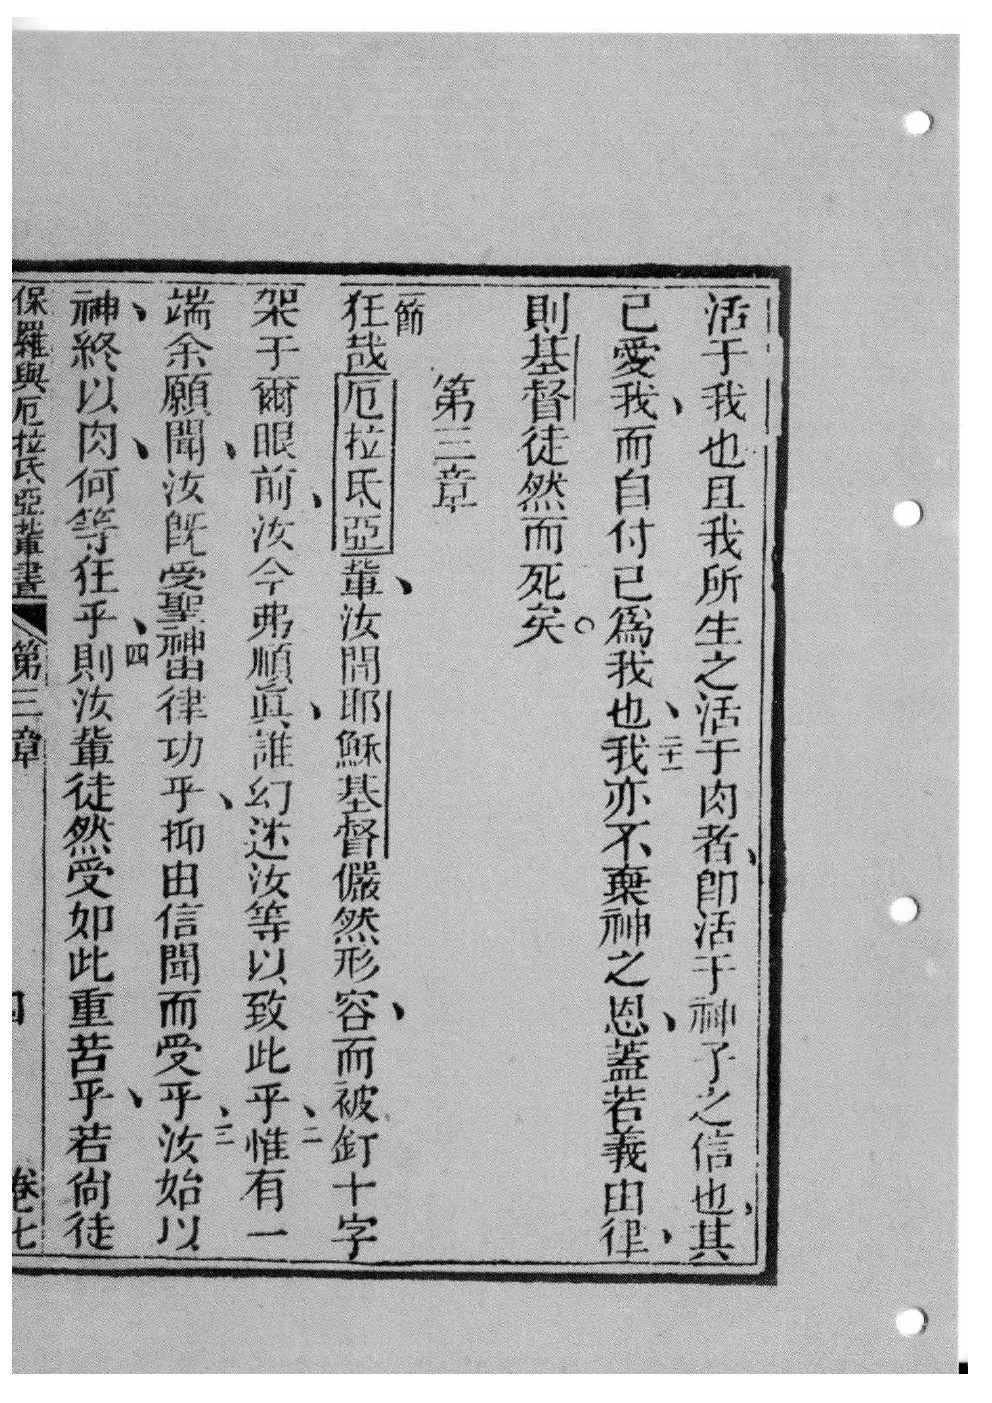 活于我也且我所生之活于肉者、卽活于神子之信也、其
己愛我、而自付己爲我也、二十一我亦不棄神之恩、蓋若義由律、
則基督徒然而死矣。
第三章
節狂哉厄拉氐亞輩、汝間耶穌基督儼然形容、而被釘十字
架于爾眼前、汝今弗順眞、誰幻迷汝等以致此乎、二惟有一
端余願聞、汝旣受聖神由律功乎、抑由信聞而受乎、三汝始以
神、終以肉、何等狂乎、四則汝輩徒然受如此重苦乎、若尙徒
保羅與厄拉氐亞輩書 第三章 四 卷七